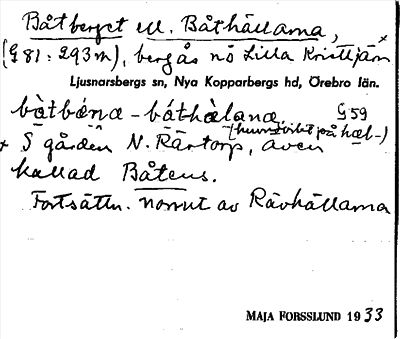 Båtberget ell. Båthällarna, ×
(G 81: 293 m), bergås nö Lilla Kristtjärn
Ljusnarsbergs sn, Nya Kopparbergs hd, Örebro län.
bàtbǽnæ - báthàlanæ, G 59
(huvudvikt på hæl-)
× S gården N. Rärtorp, även
kallad Båtens.
Fortsättn. norrut av Rävhällarna
MAJA FORSSLUND 1933